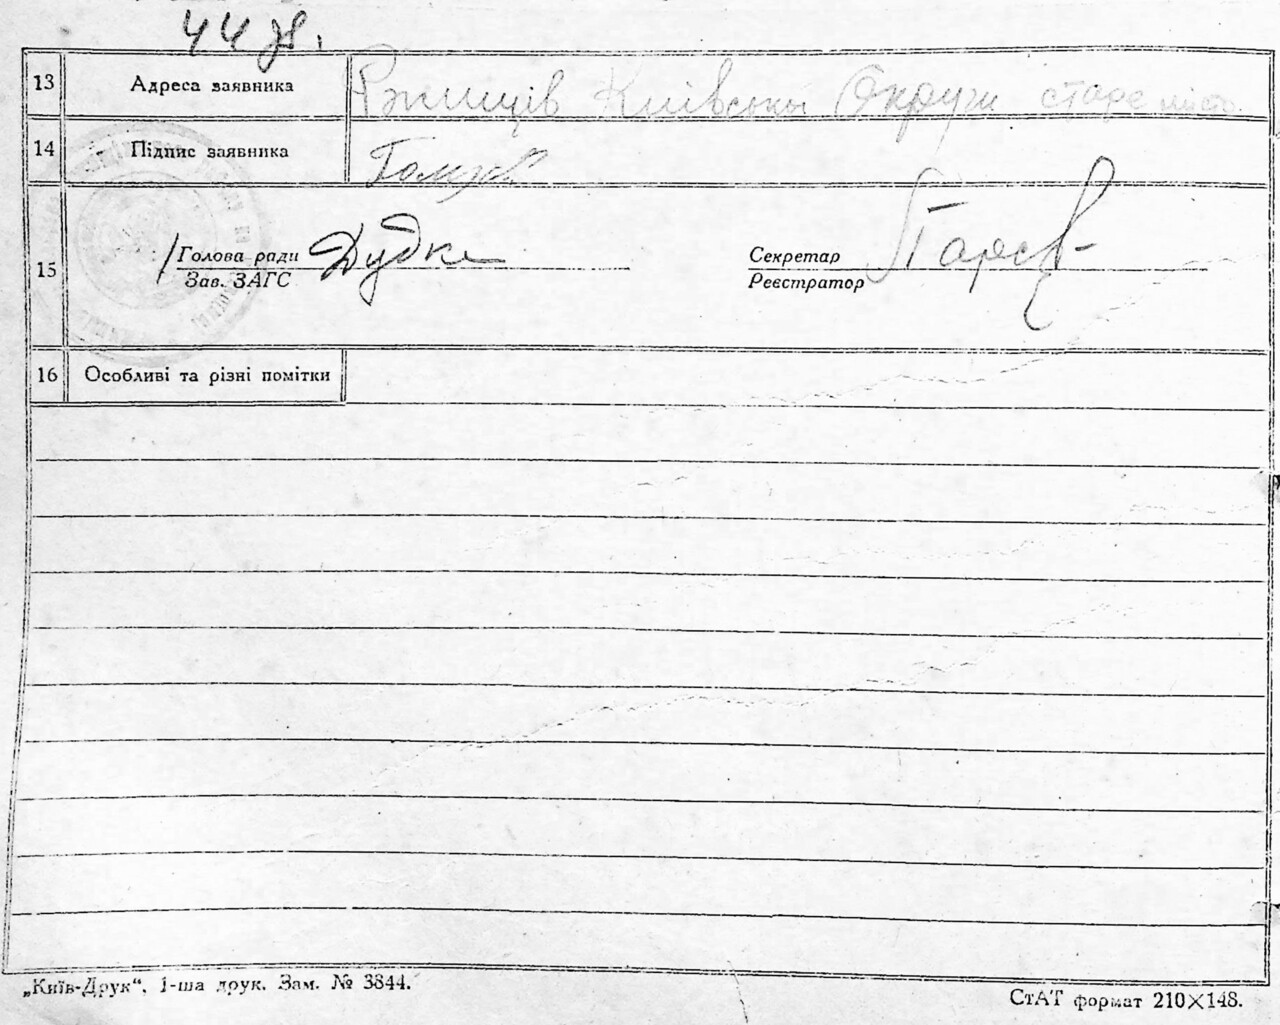 44
13 Адреса заявника Ржищів Київської Округи старе місто.
14 Підпис заявника
15 Голова ради Дудка Секретар
Зав. ЗАГС Реєстратор
16 Особливі та різні помітки
„Київ-Друк“, 1-ша друк. Зам. № 3844.
СтАТ формат 210×148.